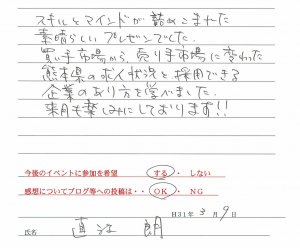 スキルとマインドが詰めこまれた
素晴らしいプレゼンでした。
買い手市場から、売り手市場に変わった
熊本県の求人状況と採用できる
企業のあり方を学べました。
来月も楽しみにしております!!
今後のイベントに参加を希望 する ・ しない
感想についてブログ等への投稿は・・ OK ・ NG
H31年 3月 9日
氏名 直江 朗